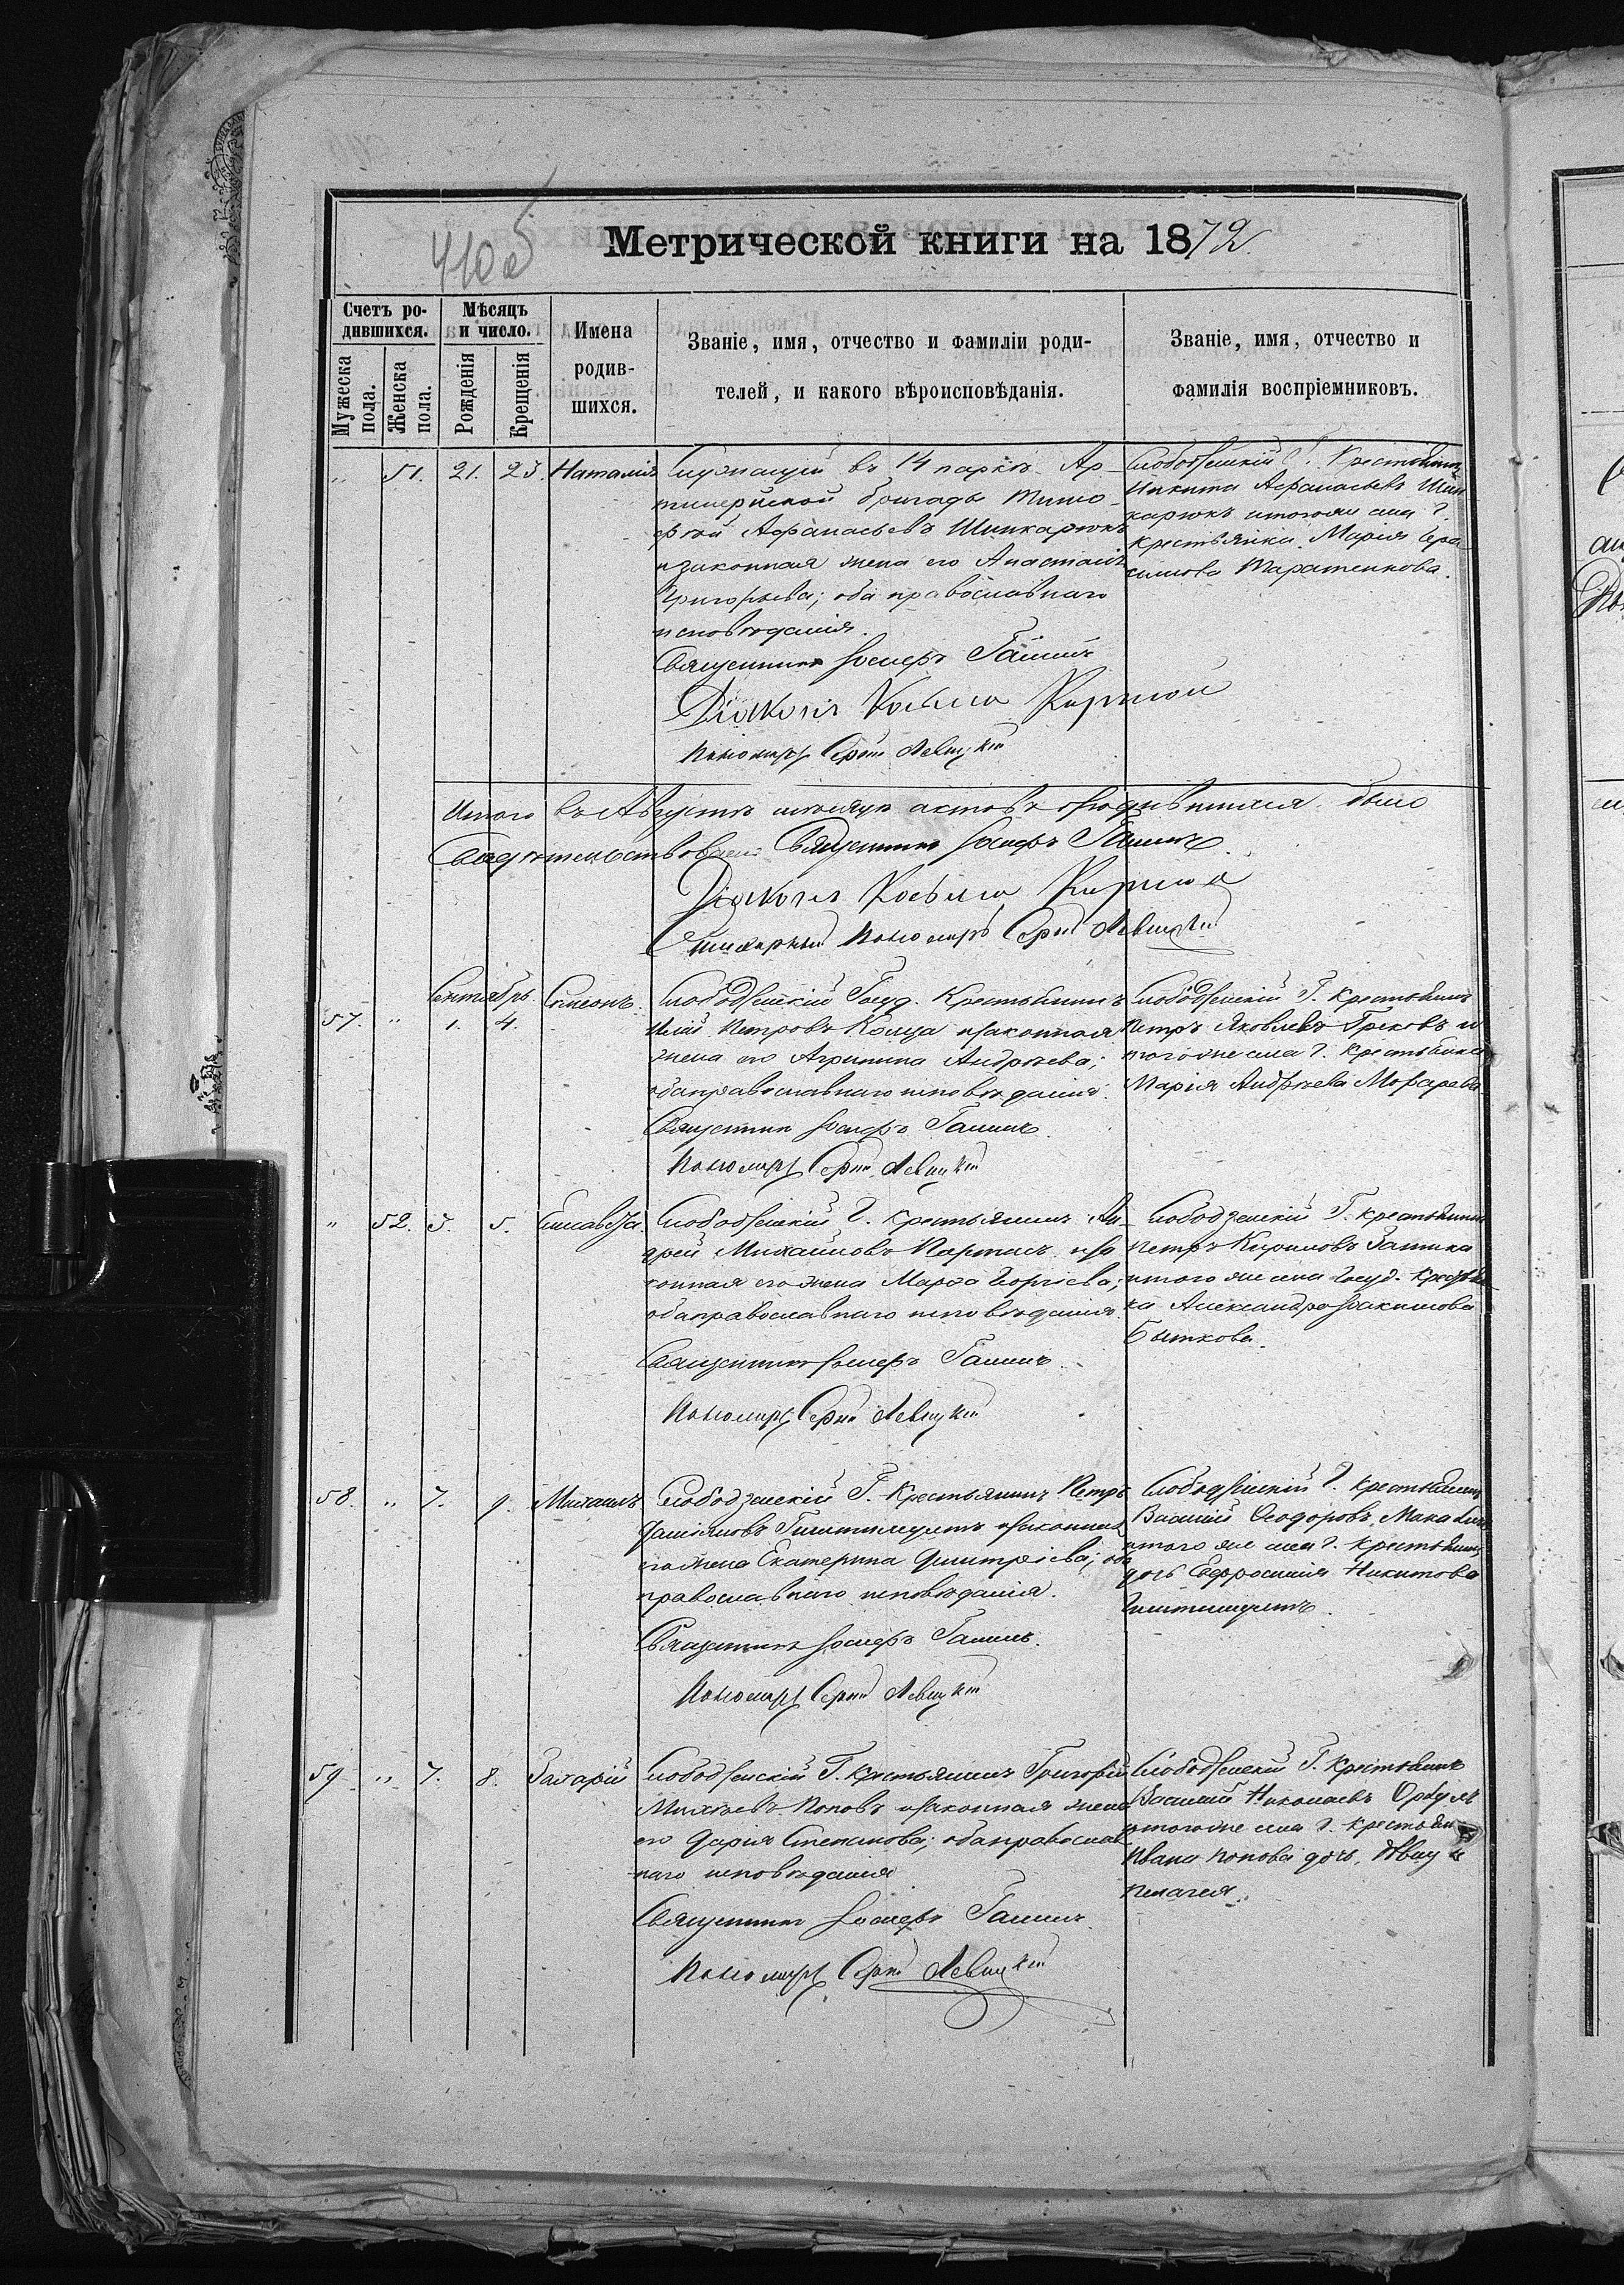 410 об
Метрической книги на 1872.
Счетъ ро-
дившихся.
Мѣсяцъ
и число.
Имена
родив-
шихся.
Званіе, имя, отчество и фамиліи роди-
телей, и какого вѣроисповѣданія.
Званіе, имя, отчество и
фамилія воспріемниковъ.
Мужеска
пола.
Женска
пола.
Рожденія
Крещенія
" 51. 21. 23. Наталія
Служащій въ 14 паркѣ Ар-
тилерійской бригады Тимо-
фей Афанасьевъ Шинкарюкъ
и законная жена его Анастасія
Григорьева; оба православнаго
исповѣданія.
Священникъ Іосифъ Галинъ
Діаконъ Косьма
Пономарь Сергій Левицкій
Слободзейскій Г. Крестьянинъ
Никита Афанасьевъ Шин
карюкъ и того же села Г.
крестьянка Марія Гера
симова Таратенкова.
Итого въ Августѣ мѣсяцѣ актовъ о родившихся было
Свидѣтельствовали: Священникъ Іосифъ Галинъ
Діаконъ Косьма
Пономарь Сергій Левицкій
Сентябрь
57. " 1. 4. Симеонъ.
Слободзейскій Госуд. Крестьянинъ
Илій Петровъ Колца и законная
жена его Агрипина Андрѣева;
оба православнаго исповѣданія.
Священникъ Іосифъ Галинъ.
Пономарь Сергій Левицкій
Слободзейскій Г. Крестьянинъ
Петръ Яковлевъ Грековъ и
того же села Г. Крестьянка
Марія Андрѣева
" 52. 3. 5. Елисавета.
Слободзейскій Г. Крестьянинъ Ан-
дрей Михайловъ Парталъ и за
конная его жена Марфа Георгіева;
оба православнаго исповѣданія.
Священникъ Іосифъ Галинъ.
Пономарь Сергій Левицкій
Слободзейскій Г. Крестьянинъ
Петръ Кириловъ Затика
и того же села Госуд. Крестьян
ка Александра Іоакимова
Быткова.
58. " 7. 9. Михаилъ
Слободзейскій Г. Крестьянинъ Петръ
Даміановъ и законная
его жена Екатерина Димитріева; оба
православнаго исповѣданія.
Священникъ Іосифъ Галинъ.
Пономарь Сергій Левицкій
Слободзейскій Г. Крестьянинъ
Василій Ѳеодоровъ
и того же села Г. Крестьянина
дочь Евфросинія Никитова
59. " 7. 8. Захарій
Слободзейскій Г. Крестьянинъ Григорій
Михѣевъ Поповъ и законная жена
его Дарія Степанова; оба православ
наго исповѣданія
Священникъ Іосифъ Галинъ.
Пономарь Сергій Левицкій
Слободзейскій Г. Крестьянинъ
Василій Николаевъ
и того же села Г. Крестьян
Ивана Попова дочь, дѣвица
Пелагея.